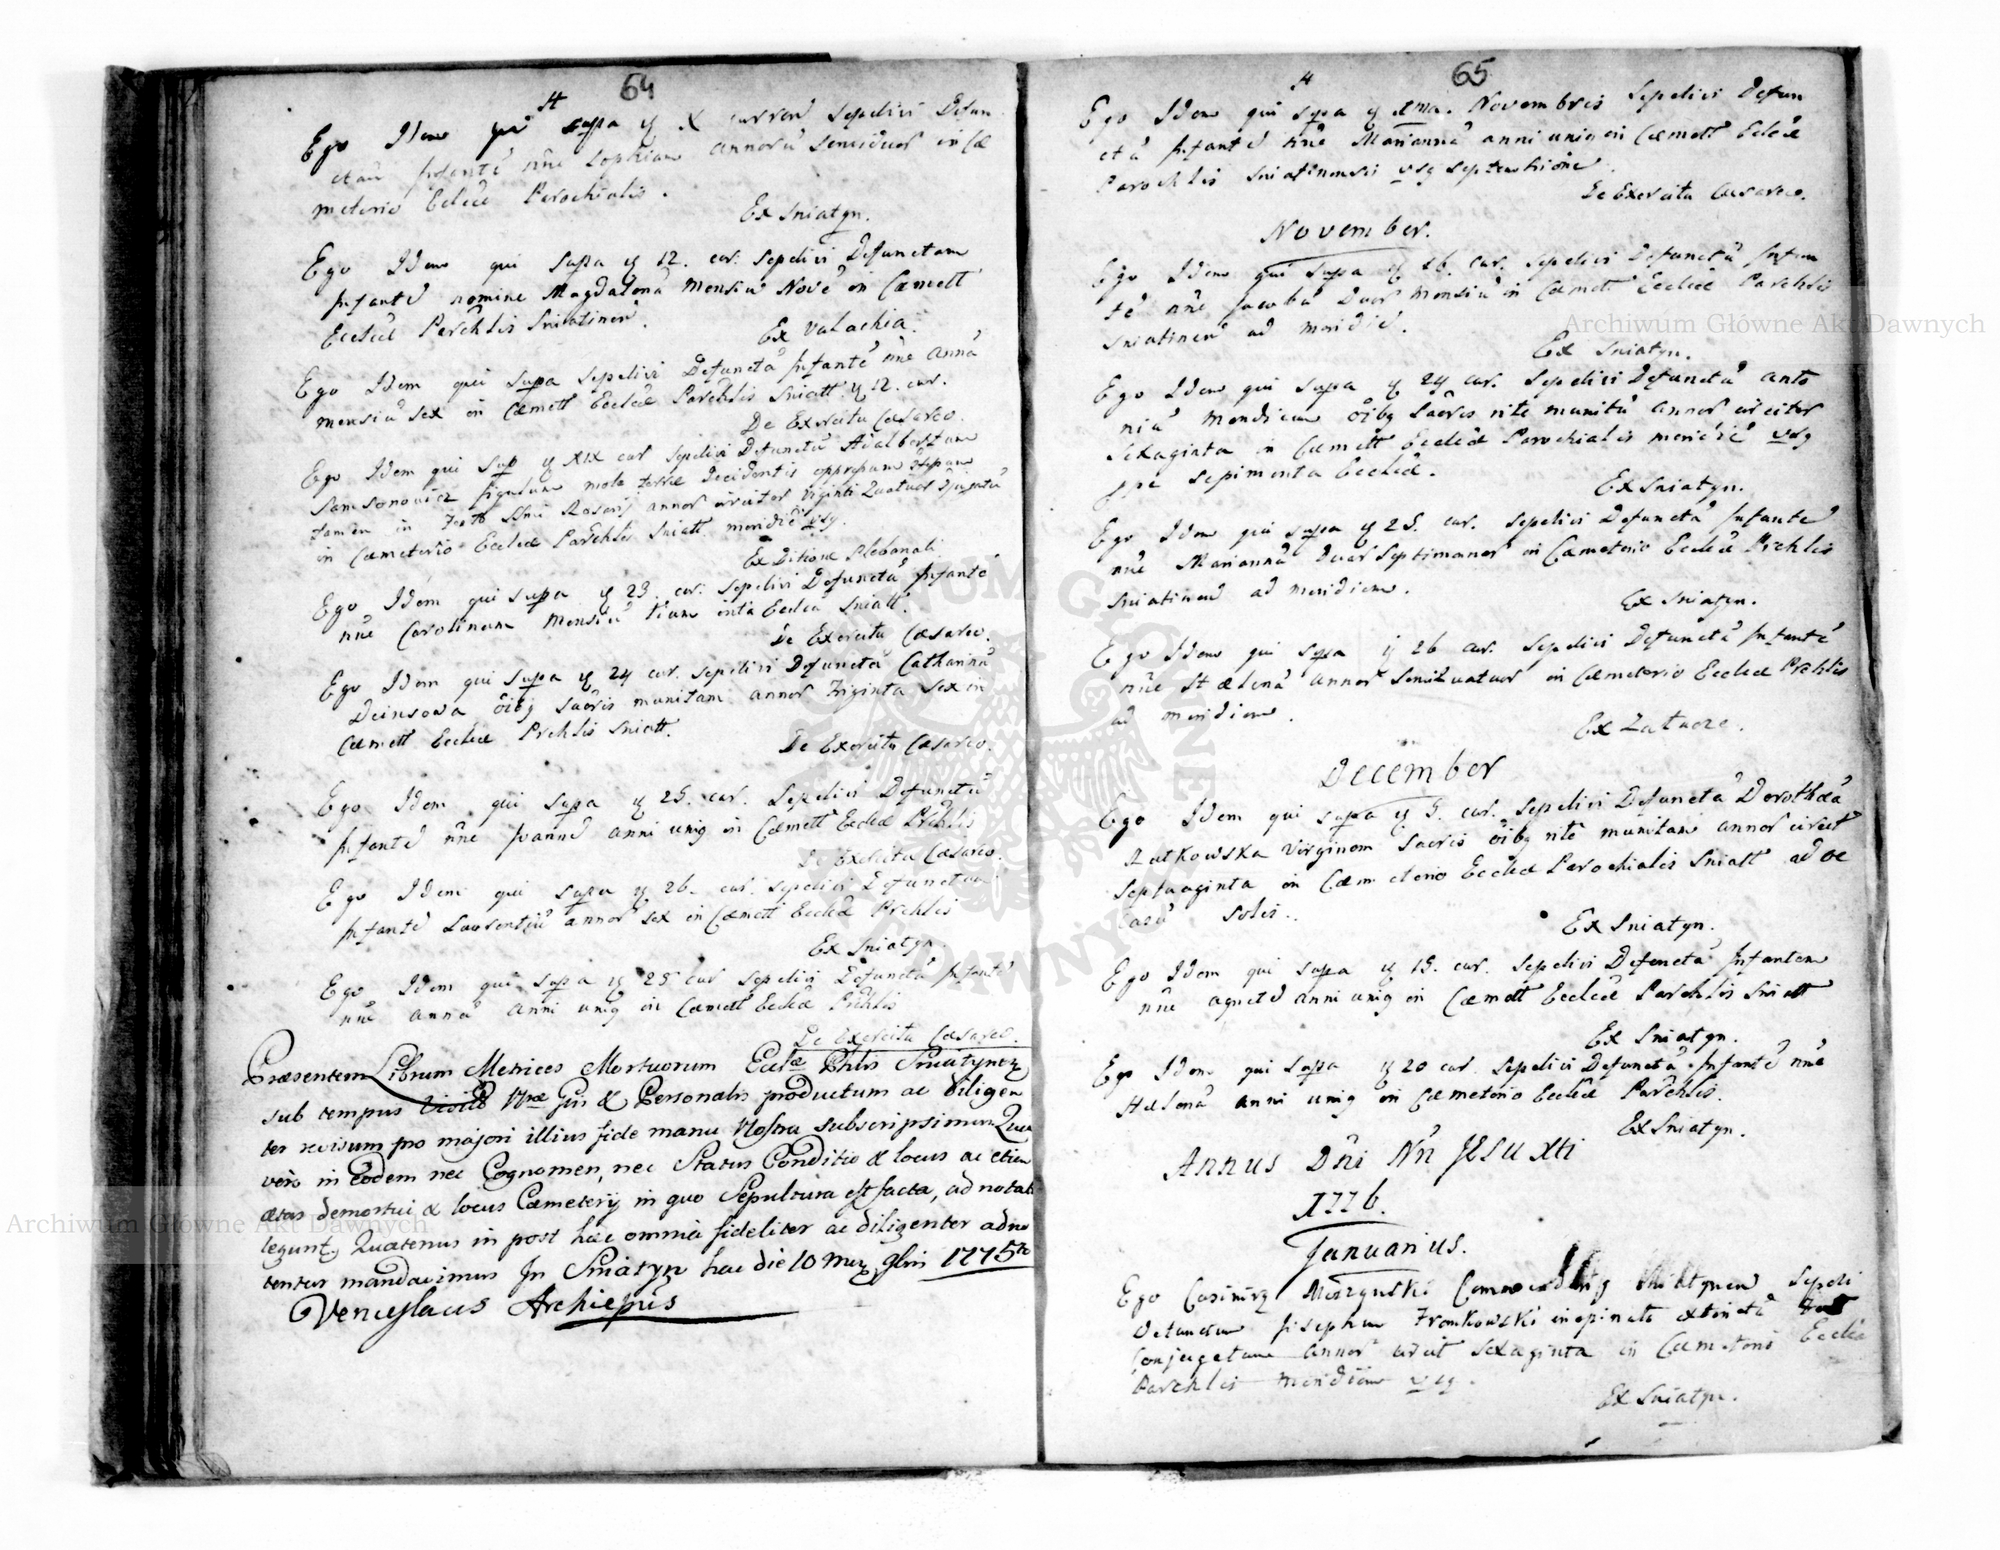 64
Ego Idem qui supra X curren sepelivi Defun
ctam Infante nne Sophiam annorū in Cæ
meterio Eclæ Parochialis.
Ex Sniatyn.
Ego Idem qui supra 12. cur. sepelivi Defunctam
Infantē nomine Magdalenā mensiū Novē in Cæmett
Ecclæ Parchlis Sniatinen.
Ex Valachia.
Ego Idem qui supra sepelivi Defunctā Infantē nne Annā
mensiū sex in Cæmett Ecclæ Parchlis Sniatt 12. cur.
De Exercitu Cæsareo.
Ego Idem qui sup XIX cur sepelivi Defunctū Adalbertum
Samsonowicz figulum mole terræ decidentis oppressum
tamen in festo SSmi Rosarij annor circiter Viginti Quatuor
in Cæmeterio Ecclæ Parchlis Sniatt. meridiē vsq.
Ex Ditione Plebanali.
Ego Idem qui supra 23. cur: sepelivi Defunctā Infantē
nne Carolinam mensiū trium intā Ecclæ Sniatt.
De Exercitu Cæsareo.
Ego Idem qui supra 24 cur. sepelivi Defunctā Catharinā
Deinsowa oibq sacris munitam annor triginta sex in
Cæmett Ecclæ Prchlis Sniatt.
De Exercitu Cæsareo.
Ego Idem qui supra 25. cur. Sepelivi Defunctū
Infantē nne Joannē anni uniq in Cæmett Ecclæ Prchlis
De Exercitu Cæsareo.
Ego Idem qui supra 26. cur. sepelivi Defunctum
Infantē Laurentiū annor sex in Cæmett Ecclæ Prchlis
Ex Sniatyn.
Ego Idem qui supra 25 cur sepelivi Defunctā Infantē
nne Annā anni uniq in Cæmett Ecclæ Prchlis
De Exercitu Cæsareo.
Præsentem Librum Metrices Mortuorum Eccle Pchlis Sniatynen
sub tempus Visite Nræ Gnis & Personalis productum ac diligen
ter revisum pro majori illius fide manu Nostra subscripsimus Quia
vero in Eodem nec Cognomen, nec Status Conditio & locus ac etiam
ætas demortui & locus Cæmeterij in quo Sepultura est facta, adnotati
leguntr, Quatenus in post hæc omnia fideliter ac diligenter adno
tentur mandavimus In Sniatyn hac die 10 Mens 9bris 1775to
Venceslaus Archiepus
65
Ego Idem qui supra Novembris sepelivi Defun
ctā Infantē nne Mariannā anni uniq in Cæmett Eclæ
Parochlis Sniatinensis vsq septentrione.
De Exercitu Cæsareo.
November.
Ego Idem qui supra 16. cur. sepelivi Defunctū Infan
tē nne Jacobū Duor mensiū in Cæmett Ecclæ Parchlis
Sniatinen ad meridiē.
Ex Sniatyn.
Ego Idem qui supra 24 cur. sepelivi Defunctū Anto
niū Mendicum oibq sacris rite munitū annor circiter
sexaginta in Cæmett Ecclæ Parochialis meridiē vsq
ppe sepimenta Ecclæ.
Ex Sniatyn.
Ego Idem qui supra 25. cur. sepelivi Defunctā Infantē
nne Mariannā Duar septimanar in Cæmeterio Ecclæ Prchlis
Sniatinen ad meridiem.
Ex Sniatyn.
Ego Idem qui supra 26 cur. sepelivi Defunctā Infantē
nne Hælenā annor in Cæmeterio Ecclæ Prchlis
ad meridiem.
Ex Zatucze.
December
Ego Idem qui supra 5. cur. sepelivi Defunctā Dorothæā
Rutkowska Virginem Sacris oibq rite munitam annor circit
septuaginta in Cæmeterio Ecclæ Parochialis Sniatt ad oc
casū solis.
Ex Sniatyn.
Ego Idem qui supra 15. cur. sepelivi Defunctā Infantem
nne Agnetē anni uniq in Cæmett Ecclæ Parchlis Sniatt
Ex Sniatyn.
Ego Idem qui supra 20 cur sepelivi Defunctā Infantē nne
Hælenā anni uniq in Cæmeterio Ecclæ Parchlis.
Ex Sniatyn.
Annus Dni Nri Jesu Xti
1776.
Januarius.
Ego Casimirq sepelivi
Defunctum Josephum Fronkowski inopinatē extinctū
Conjugatum annor circit sexaginta in Cæmeterio Ecclæ
Parchlis meridiem vsq.
Ex Sniatyn.
Archiwum Główne Akt Dawnych
Archiwum Główne Akt Dawnych
ARCHIWUM GŁÓWNE AKT DAWNYCH